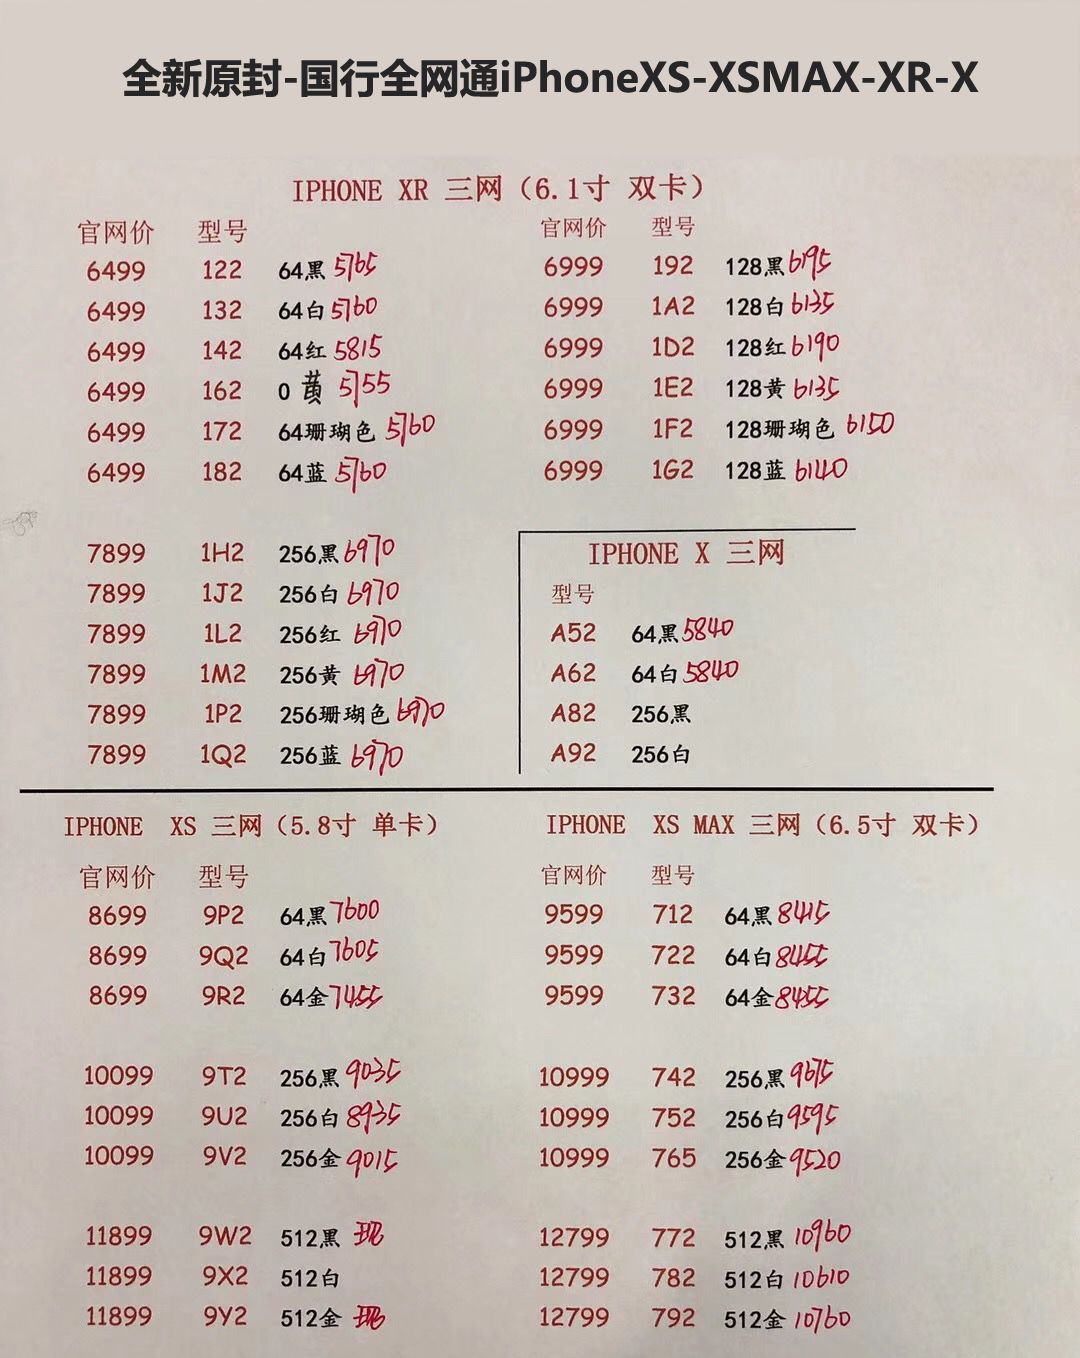 全新原封-国行全网通iPhoneXS-XSMAX-XR-X
IPHONE XR 三网（6.1寸 双卡）
官网价 型号
6499 122 64黑 5765
6499 132 64白 5760
6499 142 64红 5815
6499 162 0 黄 5755
6499 172 64珊瑚色 5760
6499 182 64蓝 5760
官网价 型号
6999 192 128黑 6195
6999 1A2 128白 6135
6999 1D2 128红 6190
6999 1E2 128黄 6135
6999 1F2 128珊瑚色 6150
6999 1G2 128蓝 6140
7899 1H2 256黑 6970
7899 1J2 256白 6970
7899 1L2 256红 6970
7899 1M2 256黄 6970
7899 1P2 256珊瑚色 6970
7899 1Q2 256蓝 6970
IPHONE X 三网
型号
A52 64黑 5840
A62 64白 5840
A82 256黑
A92 256白
IPHONE XS 三网（5.8寸 单卡）
官网价 型号
8699 9P2 64黑 7600
8699 9Q2 64白 7605
8699 9R2 64金 7455
10099 9T2 256黑 9035
10099 9U2 256白 8935
10099 9V2 256金 9015
11899 9W2 512黑 现
11899 9X2 512白
11899 9Y2 512金 现
IPHONE XS MAX 三网（6.5寸 双卡）
官网价 型号
9599 712 64黑 8415
9599 722 64白 8455
9599 732 64金 8455
10999 742 256黑 9675
10999 752 256白 9595
10999 765 256金 9520
12799 772 512黑 10960
12799 782 512白 10610
12799 792 512金 10760